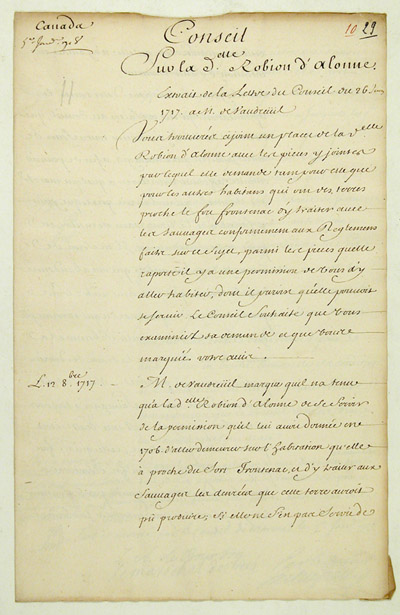 Canada
10 29
Conseil
Sur la d.elle Robion d'alonne.
Extrait de la Lettre du Conseil du 26
1717. a M. de Vaudreuil
Vous trouverez cijoint un placet de la d.elle
Robion d'alonne avec les pieces y jointes
par lequel elle demande tant pour elle que
pour les autres habitans qui ont des terres
proche le fort frontenac d'y traiter avec
les sauvages conformement aux Reglemens
faits sur ce sujet, parmi les pieces quelle
raporte il y a une permission de vous d'y
aller habiter, dont il paroit qu'elle pouvoit
se servir Le Conseil Souhaite que vous
examiniez sa demande et que vous
marquiés votre avis.
L. 12 8.bre 1717
M. de Vaudreüil marque quil na tenu
qu'a la d.elle Robion d'alonne de se servir
de la permission qu'il lui avoit donnée en
1706 d'aller demeurer sur l'habitation qu'elle
a proche du fort frontenac, et d'y traiter aux
Sauvages les denrées que cette terre auroit
pû produire, Si elle ne s'en pas Servie